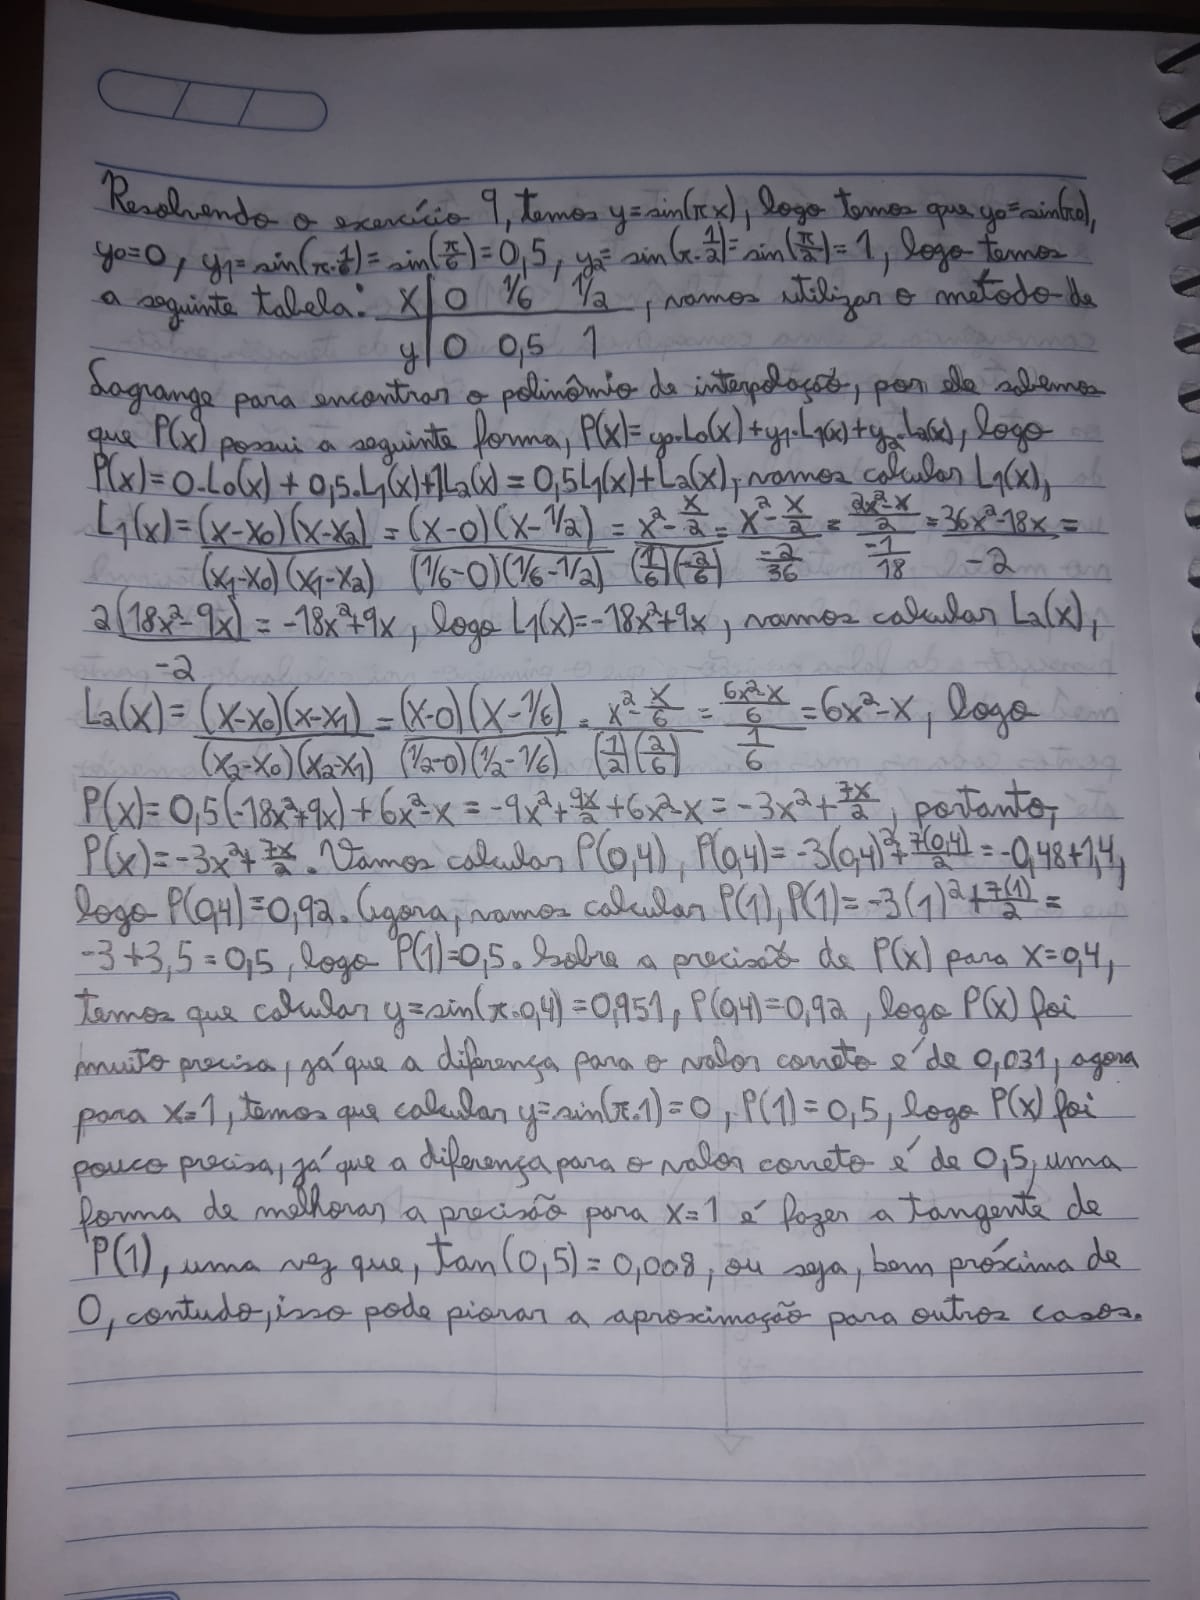 Resolvendo o exercício 9, temos y=sin(πx), logo temos que y0=sin(π0),
y0=0, y1=sin(π·1/6)=sin(π/6)=0,5, y2=sin(π·1/2)=sin(π/2)=1, logo temos
a seguinte tabela: x|0 1/6 1/2, vamos utilizar o método de
y|0 0,5 1
Lagrange para encontrar o polinômio de interpolação, por ele sabemos
que P(x) possui a seguinte forma, P(x)=y0·L0(x)+y1·L1(x)+y2·L2(x), logo
P(x)=0·L0(x)+0,5·L1(x)+1L2(x)=0,5L1(x)+L2(x), vamos calcular L1(x),
L1(x)=(x-x0)(x-x2)/(x1-x0)(x1-x2)=(x-0)(x-1/2)/(1/6-0)(1/6-1/2)=x²-x/2/(1/6)(-2/6)=x²-x/2/-2/36=2x²-x/2/-1/18=36x²-18x/-2=
2(18x²-9x)/-2=-18x²+9x, logo L1(x)=-18x²+9x, vamos calcular L2(x),
L2(x)=(x-x0)(x-x1)/(x2-x0)(x2-x1)=(x-0)(x-1/6)/(1/2-0)(1/2-1/6)=x²-x/6/(1/2)(2/6)=6x²-x/6/1/6=6x²-x, logo
P(x)=0,5(-18x²+9x)+6x²-x=-9x²+9x/2+6x²-x=-3x²+7x/2, portanto,
P(x)=-3x²+7x/2. Vamos calcular P(0,4), P(0,4)=-3(0,4)²+7(0,4)/2=-0,48+1,4,
logo P(0,4)=0,92. Agora, vamos calcular P(1), P(1)=-3(1)²+7(1)/2=
-3+3,5=0,5, logo P(1)=0,5. Sobre a precisão de P(x) para x=0,4,
temos que calcular y=sin(π·0,4)=0,951, P(0,4)=0,92, logo P(x) foi
muito precisa, já que a diferença para o valor correto é de 0,031, agora
para x=1, temos que calcular y=sin(π·1)=0, P(1)=0,5, logo P(x) foi
pouco precisa, já que a diferença para o valor correto é de 0,5, uma
forma de melhorar a precisão para x=1 é fazer a tangente de
P(1), uma vez que, tan(0,5)=0,008, ou seja, bem próxima de
0, contudo, isso pode piorar a aproximação para outros casos.